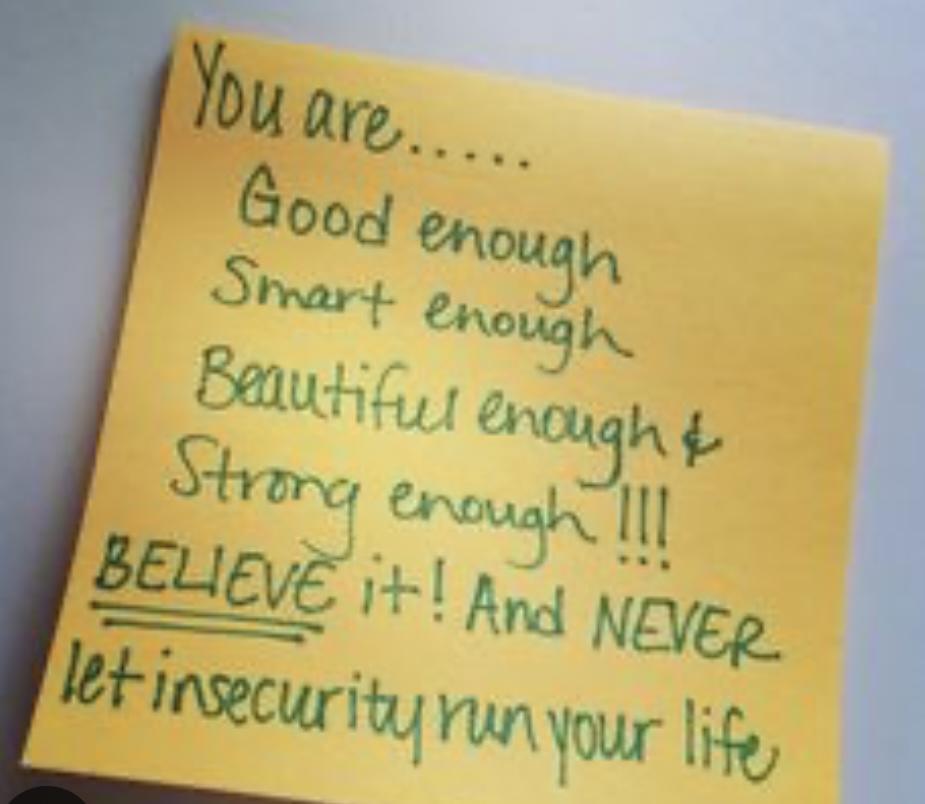 You are.....
Good enough
Smart enough
Beautiful enough &
Strong enough !!!
BELIEVE it! And NEVER
let insecurity run your life